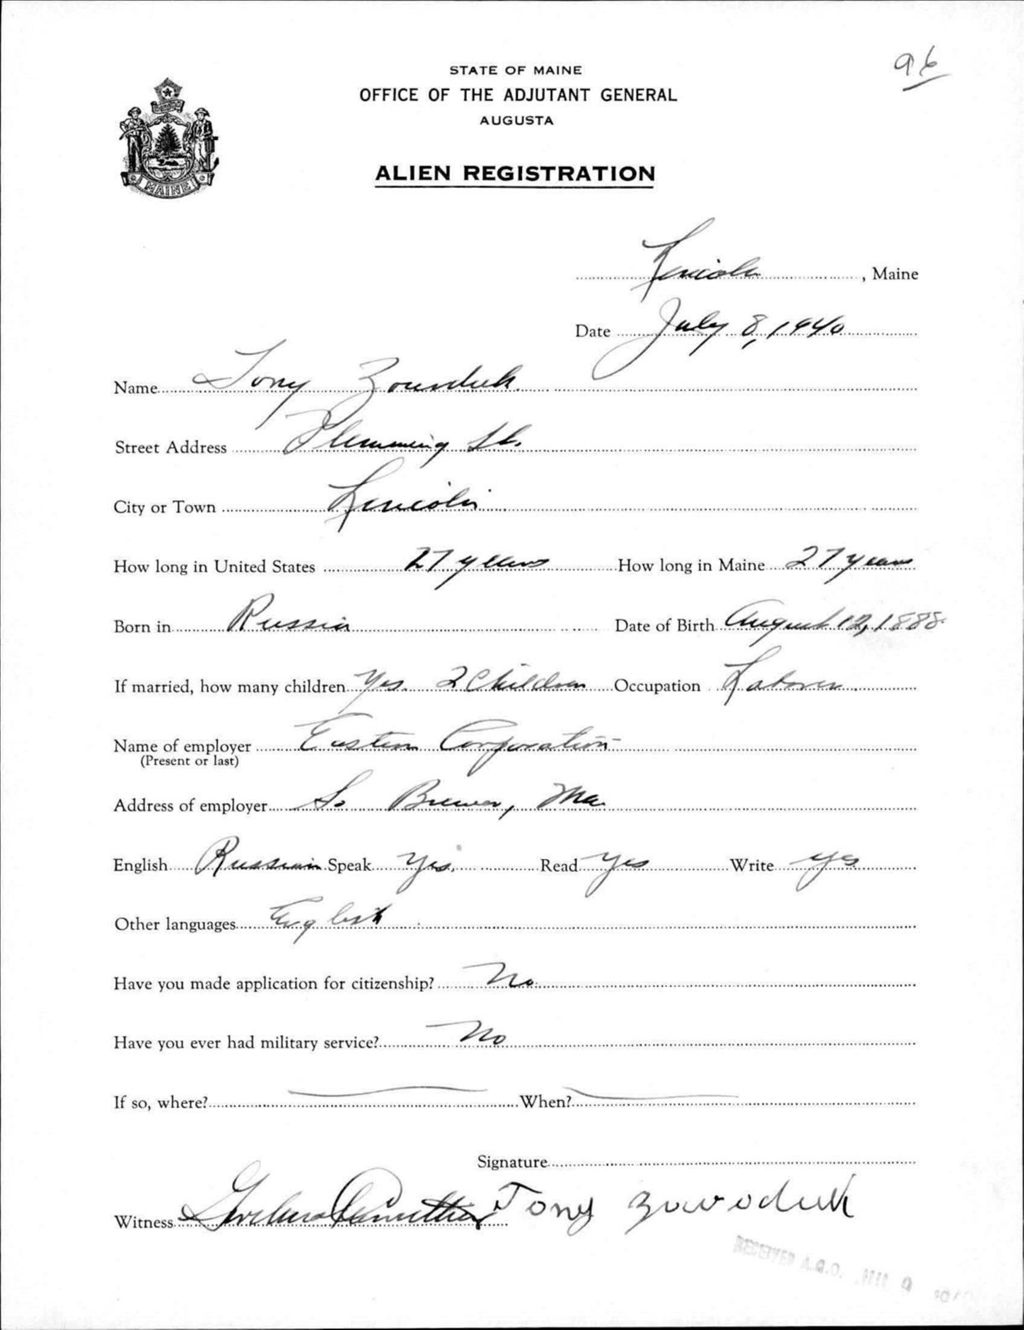 96
STATE OF MAINE
OFFICE OF THE ADJUTANT GENERAL
AUGUSTA
ALIEN REGISTRATION
MAINE
Lincoln, Maine
Date July 8, 1940
Name Tony
Street Address Flemming St.
City or Town Lincoln
How long in United States 27 years How long in Maine 27 years
Born in Russia Date of Birth August 12, 1888
If married, how many children Yes. 2 Children Occupation Laborer
Name of employer Eastern Corporation
(Present or last)
Address of employer So Brewer, Me.
English Russian Speak Yes. Read Yes Write yes
Other languages English
Have you made application for citizenship? No.
Have you ever had military service? No
If so, where? When?
Signature
Witness Tony Zowoduk
RECEIVED A.G.O.